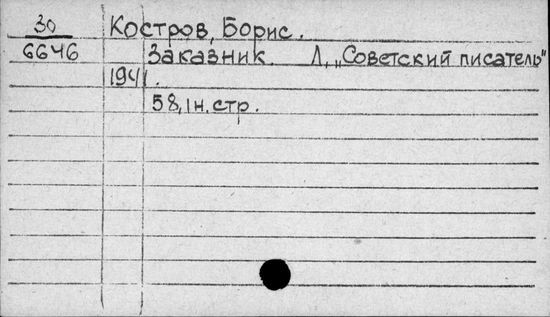 30 Костров, Борис.
6646 Заказник. Л, „Советский писатель"
1941.
58, 1 н. стр.